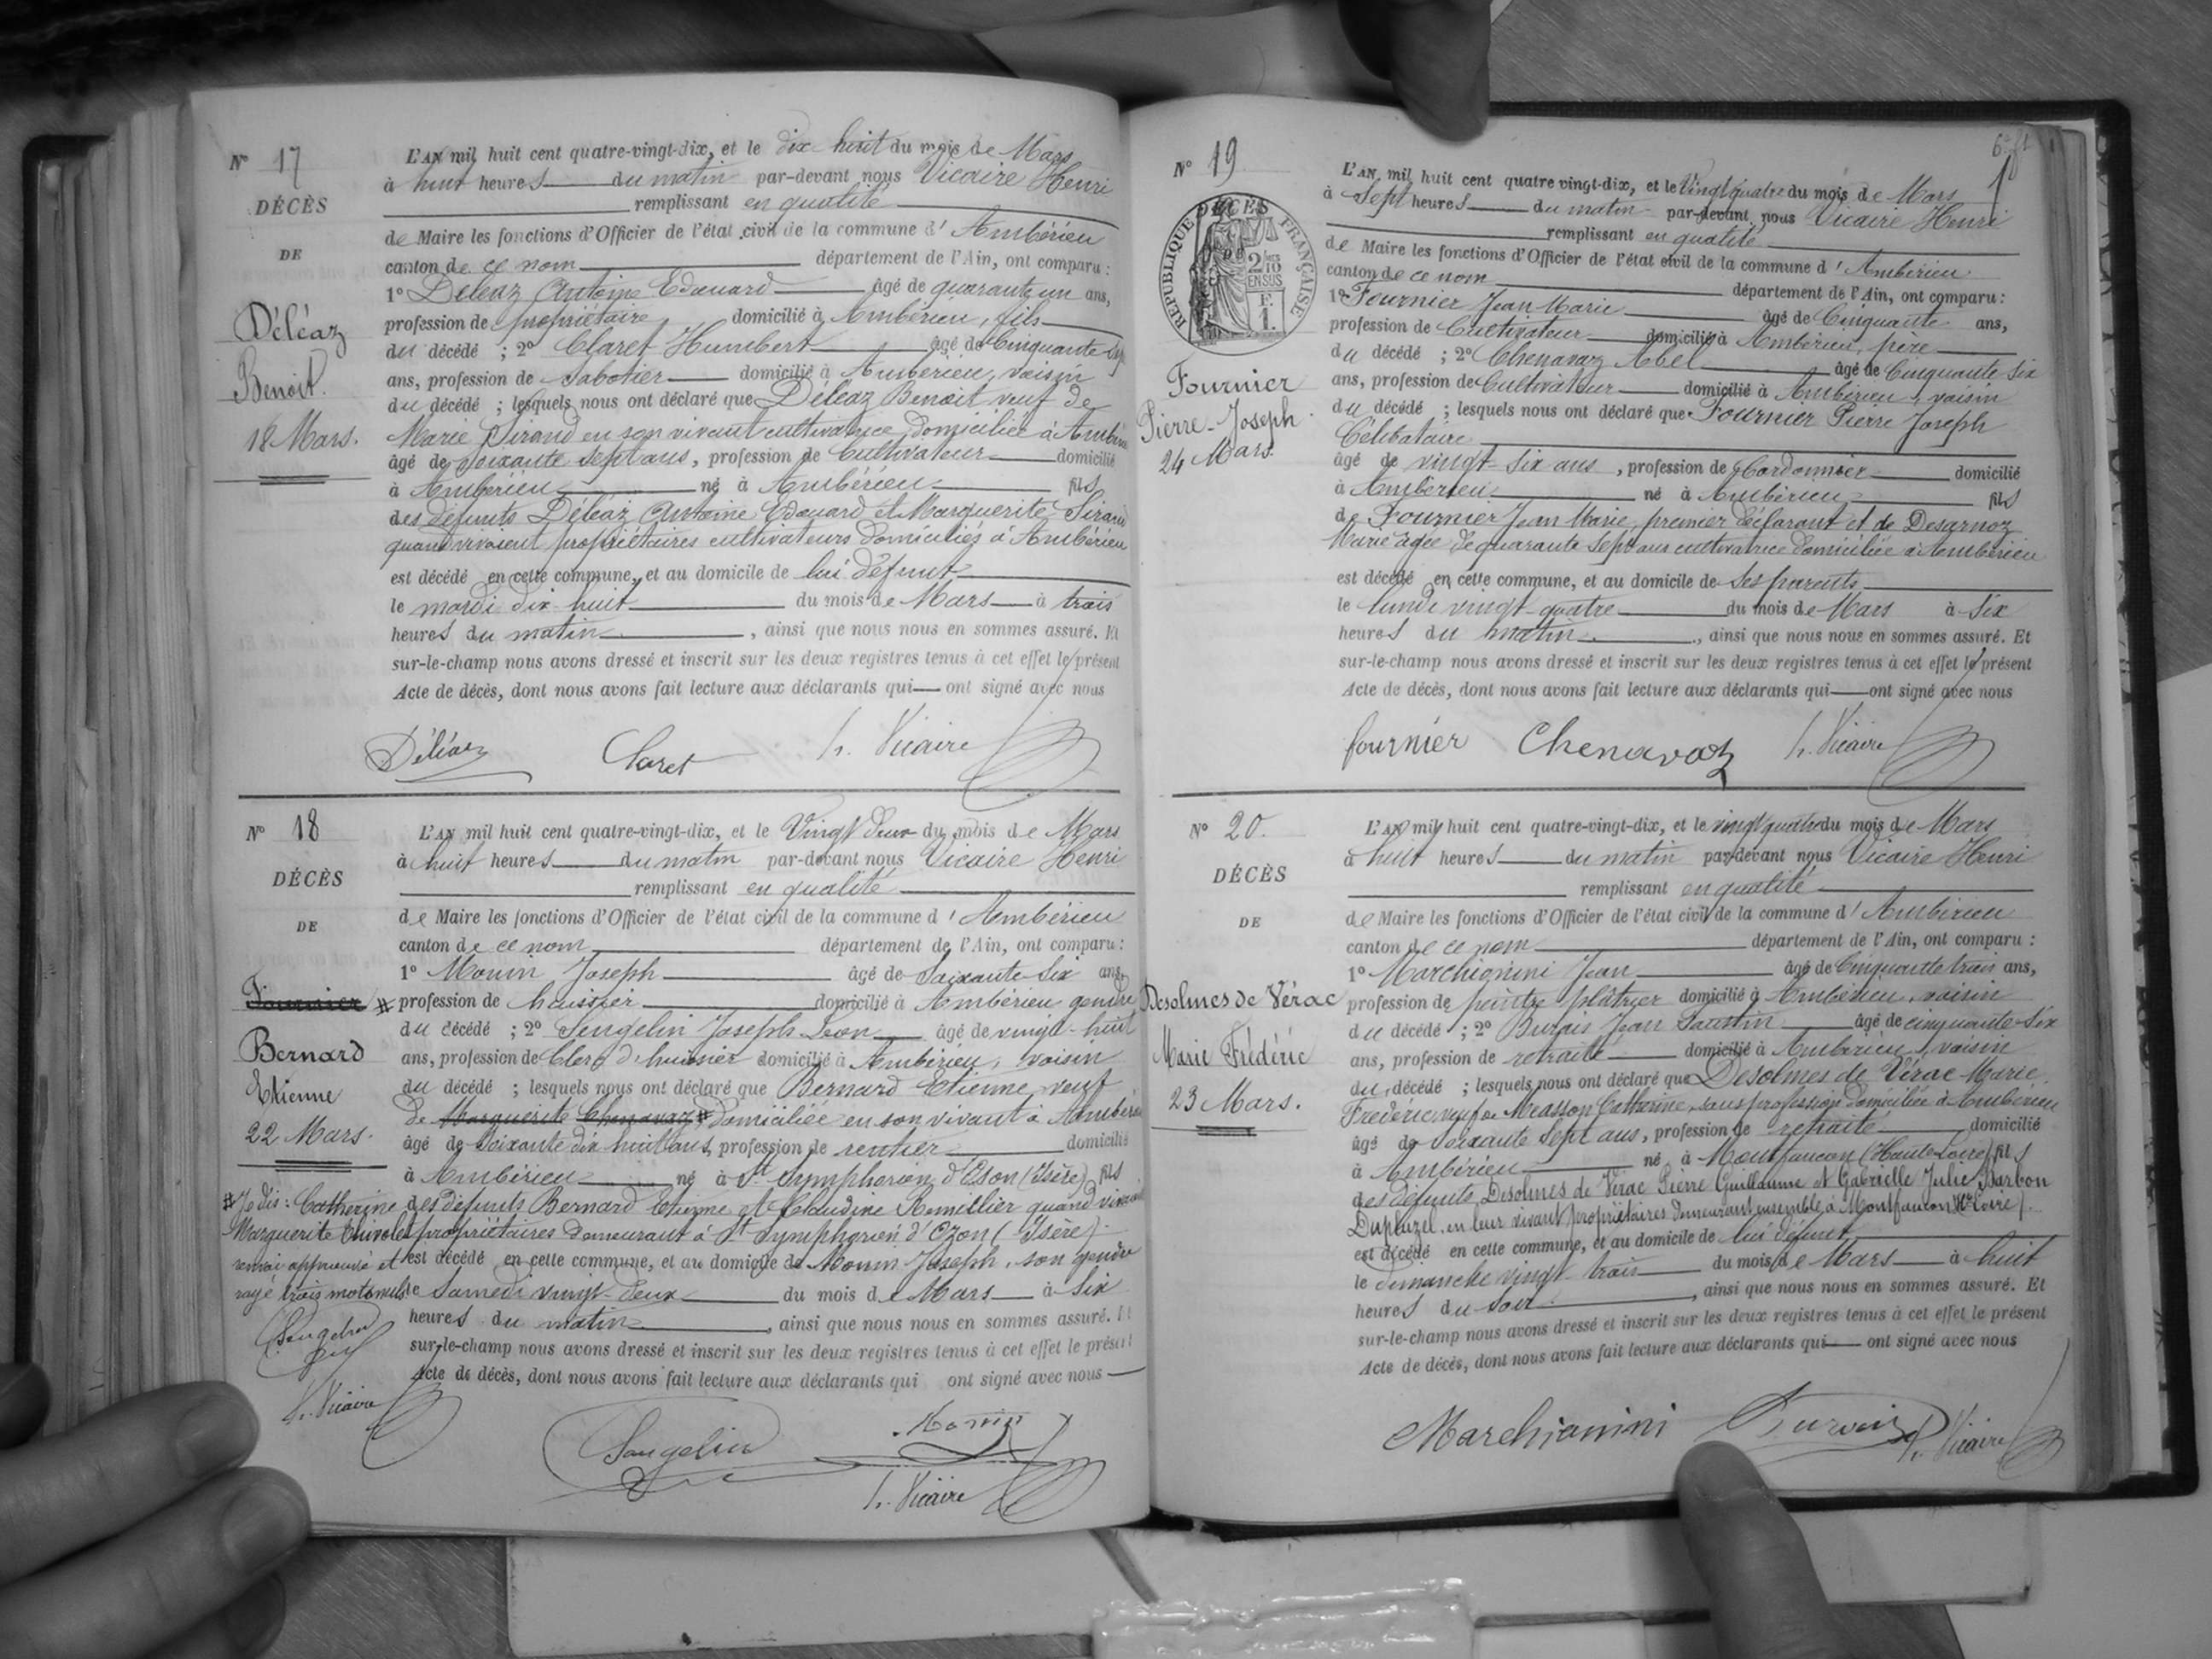 N° 17
DÉCÈS
DE
Déléaz
Benoit.
18 Mars.
L'AN mil huit cent quatre-vingt-dix, et le dix huit du mois de Mars
à huit heures du matin par-devant nous Vicaire Henri
remplissant en qualité
de Maire les fonctions d'Officier de l'état civil de la commune d' Ambérieu
canton de ce nom département de l'Ain, ont comparu :
1° Déléaz Antoine Edouard âgé de quarante un ans,
profession de propriétaire domicilié à Ambérieu, fils
du décédé ; 2° Claret Humbert âgé de Cinquante
ans, profession de Sabotier domicilié à Ambérieu, voisin
du décédé ; lesquels nous ont déclaré que Déléaz Benoit veuf de
Marie Sirand en son vivant cultivatrice domiciliée à
âgé de Soixante Sept ans, profession de Cultivateur domicilié
à Ambérieu né à Ambérieu fils
des défunts Déléaz Antoine Edouard et Marguerite Sirand
quand vivaient propriétaires cultivateurs domiciliés à Ambérieu
est décédé en cette commune, et au domicile de lui défunt
le mardi dix huit du mois de Mars à trois
heures du matin , ainsi que nous nous en sommes assuré. Et
sur-le-champ nous avons dressé et inscrit sur les deux registres tenus à cet effet le présent
Acte de décès, dont nous avons fait lecture aux déclarants qui ont signé avec nous
Déléaz Claret h. Vicaire
N° 18
DÉCÈS
DE
Fournier
Bernard
Etienne
22 Mars.
L'AN mil huit cent quatre-vingt-dix, et le Vingt Deux du mois de Mars
à huit heures du matin par-devant nous Vicaire Henri
remplissant en qualité
de Maire les fonctions d'Officier de l'état civil de la commune d' Ambérieu
canton de ce nom département de l'Ain, ont comparu :
1° Monin Joseph âgé de Soixante Six ans,
# profession de huissier domicilié à Ambérieu gendre
du décédé ; 2° Joseph Léon âgé de vingt-huit
ans, profession de Clerc d'huissier domicilié à Ambérieu, voisin
du décédé ; lesquels nous ont déclaré que Bernard Etienne veuf
de Marguerite Chenavaz # domiciliée en son vivant à
âgé de Soixante dix huit ans, profession de rentier domicilié
à Ambérieu né à St Symphorien d'Eson (Isère) fils
des défunts Bernard Etienne et Claudine Remillier quand
propriétaires demeurant à St Symphorien d'Ozon (Isère).
est décédé en cette commune, et au domicile de Monin Joseph, son gendre
le Samedi vingt-Deux du mois de Mars à Six
heures du matin , ainsi que nous nous en sommes assuré.
sur-le-champ nous avons dressé et inscrit sur les deux registres tenus à cet effet le présent
Acte de décès, dont nous avons fait lecture aux déclarants qui ont signé avec nous
# Je dis : Catherine
Marguerite
renvoi approuvé et
rayé trois mots nuls
h. Vicaire
Monin
h. Vicaire
N° 19
DÉCÈS
RÉPUBLIQUE FRANÇAISE
2/10
EN SUS
F.
1.
Fournier
Pierre-Joseph
24 Mars.
L'AN mil huit cent quatre vingt-dix, et le Vingt quatre du mois de Mars
à Sept heures du matin par-devant nous Vicaire Henri
remplissant en qualité
de Maire les fonctions d'Officier de l'état civil de la commune d' Ambérieu
canton de ce nom département de l'Ain, ont comparu :
1° Fournier Jean Marie âgé de Cinquante ans,
profession de Cultivateur domicilié à Ambérieu, père
du décédé ; 2° Chenavaz Abel âgé de Cinquante Six
ans, profession de Cultivateur domicilié à Ambérieu, voisin
du décédé ; lesquels nous ont déclaré que Fournier Pierre Joseph
Célibataire
âgé de vingt-six ans , profession de Cordonnier domicilié
à Ambérieu né à Ambérieu fils
de Fournier Jean Marie, premier déclarant et de Desarnoz
Marie âgée de quarante Sept ans cultivatrice domiciliée à Ambérieu
est décédé en cette commune, et au domicile de Ses parents
le lundi vingt-quatre du mois de Mars à Six
heures du matin , ainsi que nous nous en sommes assuré. Et
sur-le-champ nous avons dressé et inscrit sur les deux registres tenus à cet effet le présent
Acte de décès, dont nous avons fait lecture aux déclarants qui ont signé avec nous
fournier Chenavaz h. Vicaire
N° 20.
DÉCÈS
DE
Desolmes de Vérac
Marie Frédéric
23 Mars.
L'AN mil huit cent quatre-vingt-dix, et le vingt quatre du mois de Mars
à huit heures du matin par-devant nous Vicaire Henri
remplissant en qualité
de Maire les fonctions d'Officier de l'état civil de la commune d' Ambérieu
canton de ce nom département de l'Ain, ont comparu :
1° Marchionini Jean âgé de Cinquante trois ans,
profession de peintre plâtrier domicilié à Ambérieu, voisin
du décédé ; 2° Jean Faustin âgé de cinquante-Six
ans, profession de retraité domicilié à Ambérieu, voisin
du décédé ; lesquels nous ont déclaré que Desolmes de Vérac Marie
Frédéric veuf de Measson Catherine, sans profession domiciliée à Ambérieu
âgé de Soixante Sept ans, profession de retraité domicilié
à Ambérieu né à Montfaucon (Haute Loire) fils
des défunts Desolmes de Vérac Pierre Guillaume et Gabrielle Julie Barbon
en leur vivant propriétaires demeurant ensemble à Montfaucon (Hte Loire).
est décédé en cette commune, et au domicile de lui défunt
le dimanche vingt-trois du mois de Mars à huit
heures du soir , ainsi que nous nous en sommes assuré. Et
sur-le-champ nous avons dressé et inscrit sur les deux registres tenus à cet effet le présent
Acte de décès, dont nous avons fait lecture aux déclarants qui ont signé avec nous
Marchionini h. Vicaire